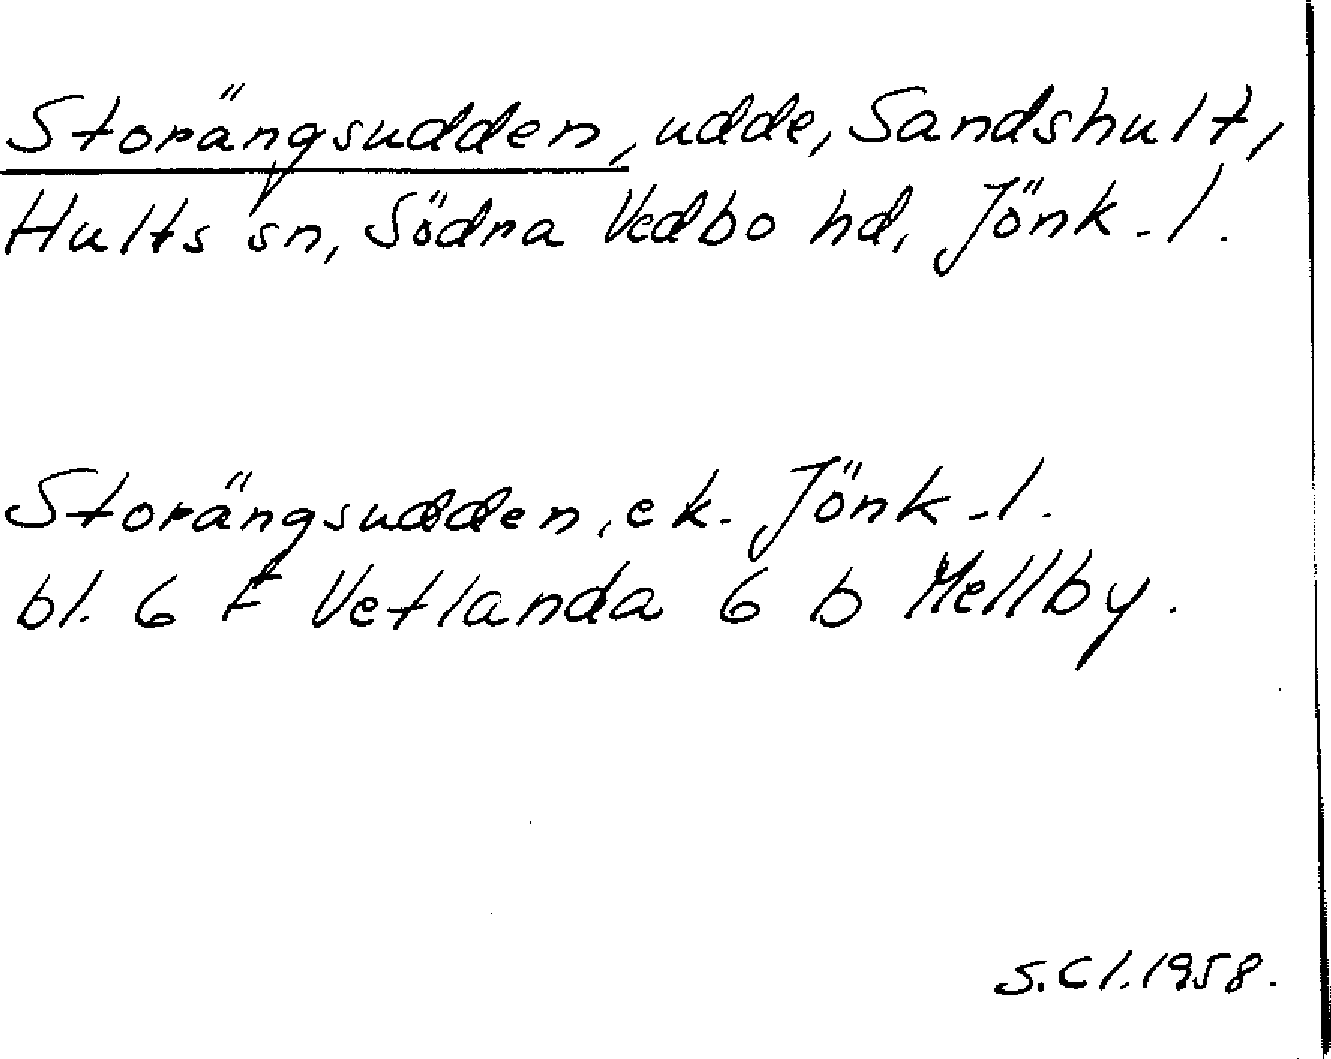 Storängsudden, udde, Sandshult,
Hults sn, Södra Vedbo hd, Jönk.l.
Storängsudden, ek. Jönk.l.
bl. 6 F Vetlanda 6 b Mellby.
S.Cl.1958.